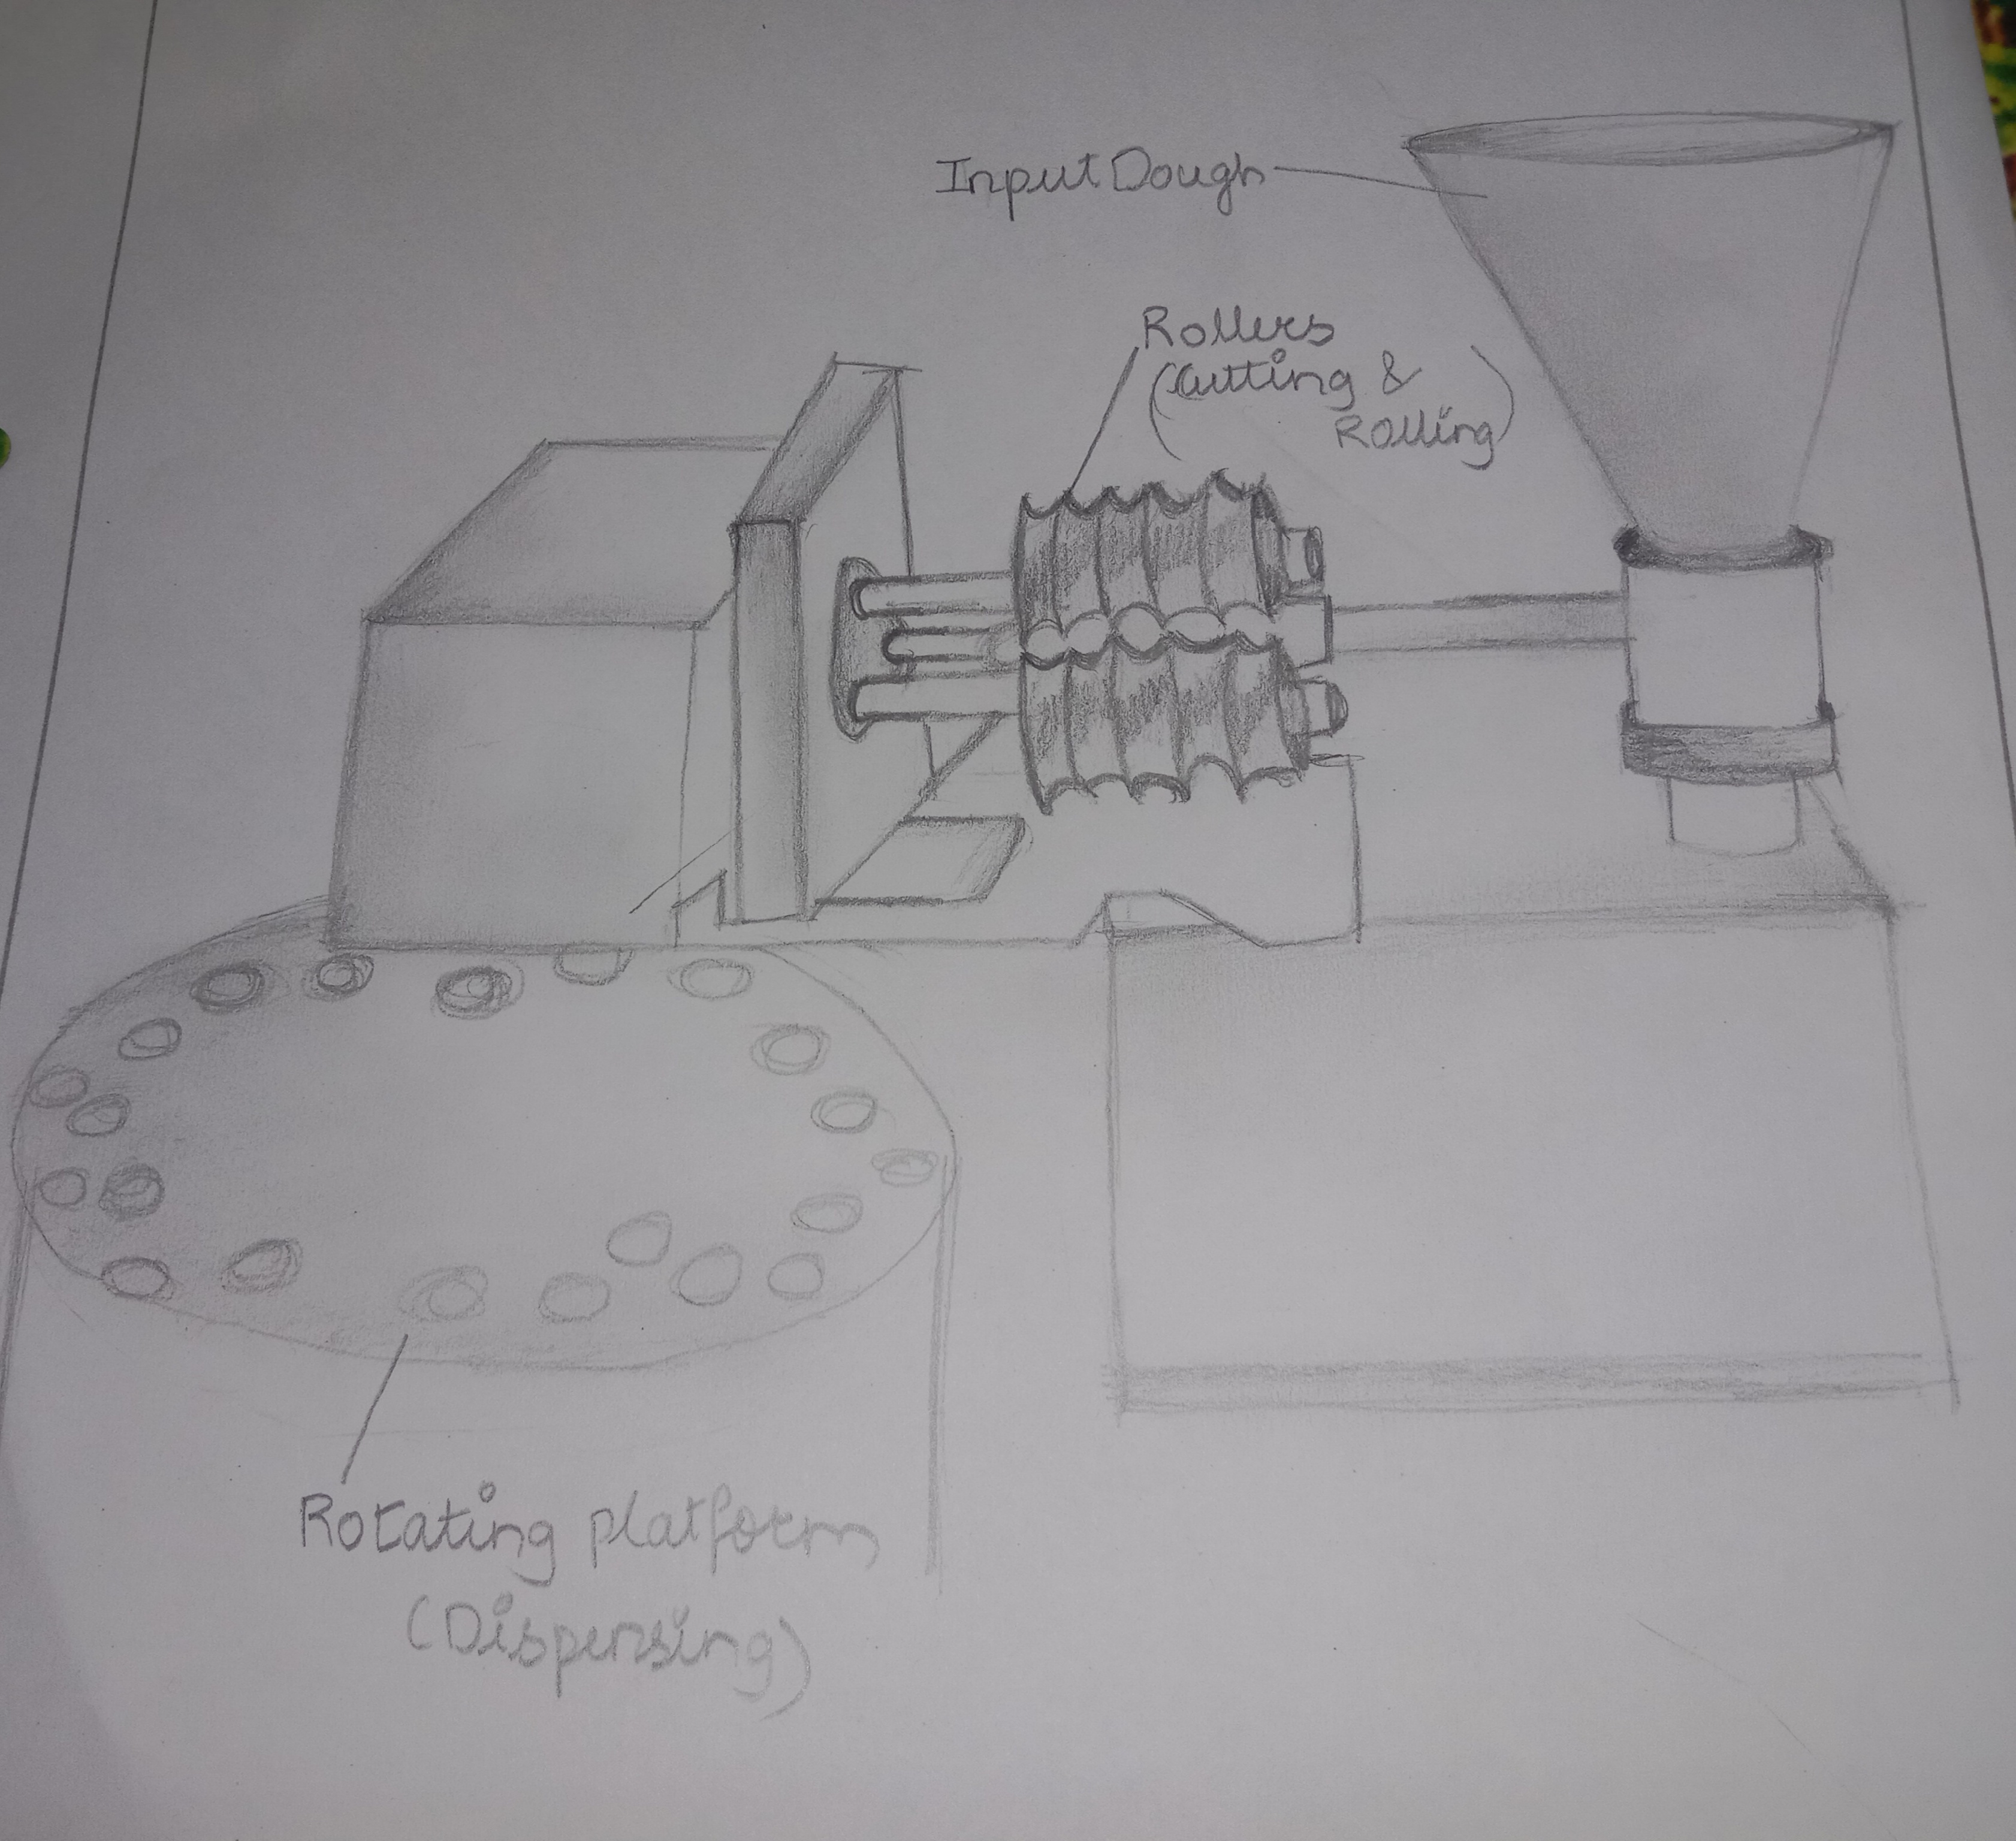 Input Dough
Rollers
(Cutting &
Rolling)
Rotating platform
(Dispensing)